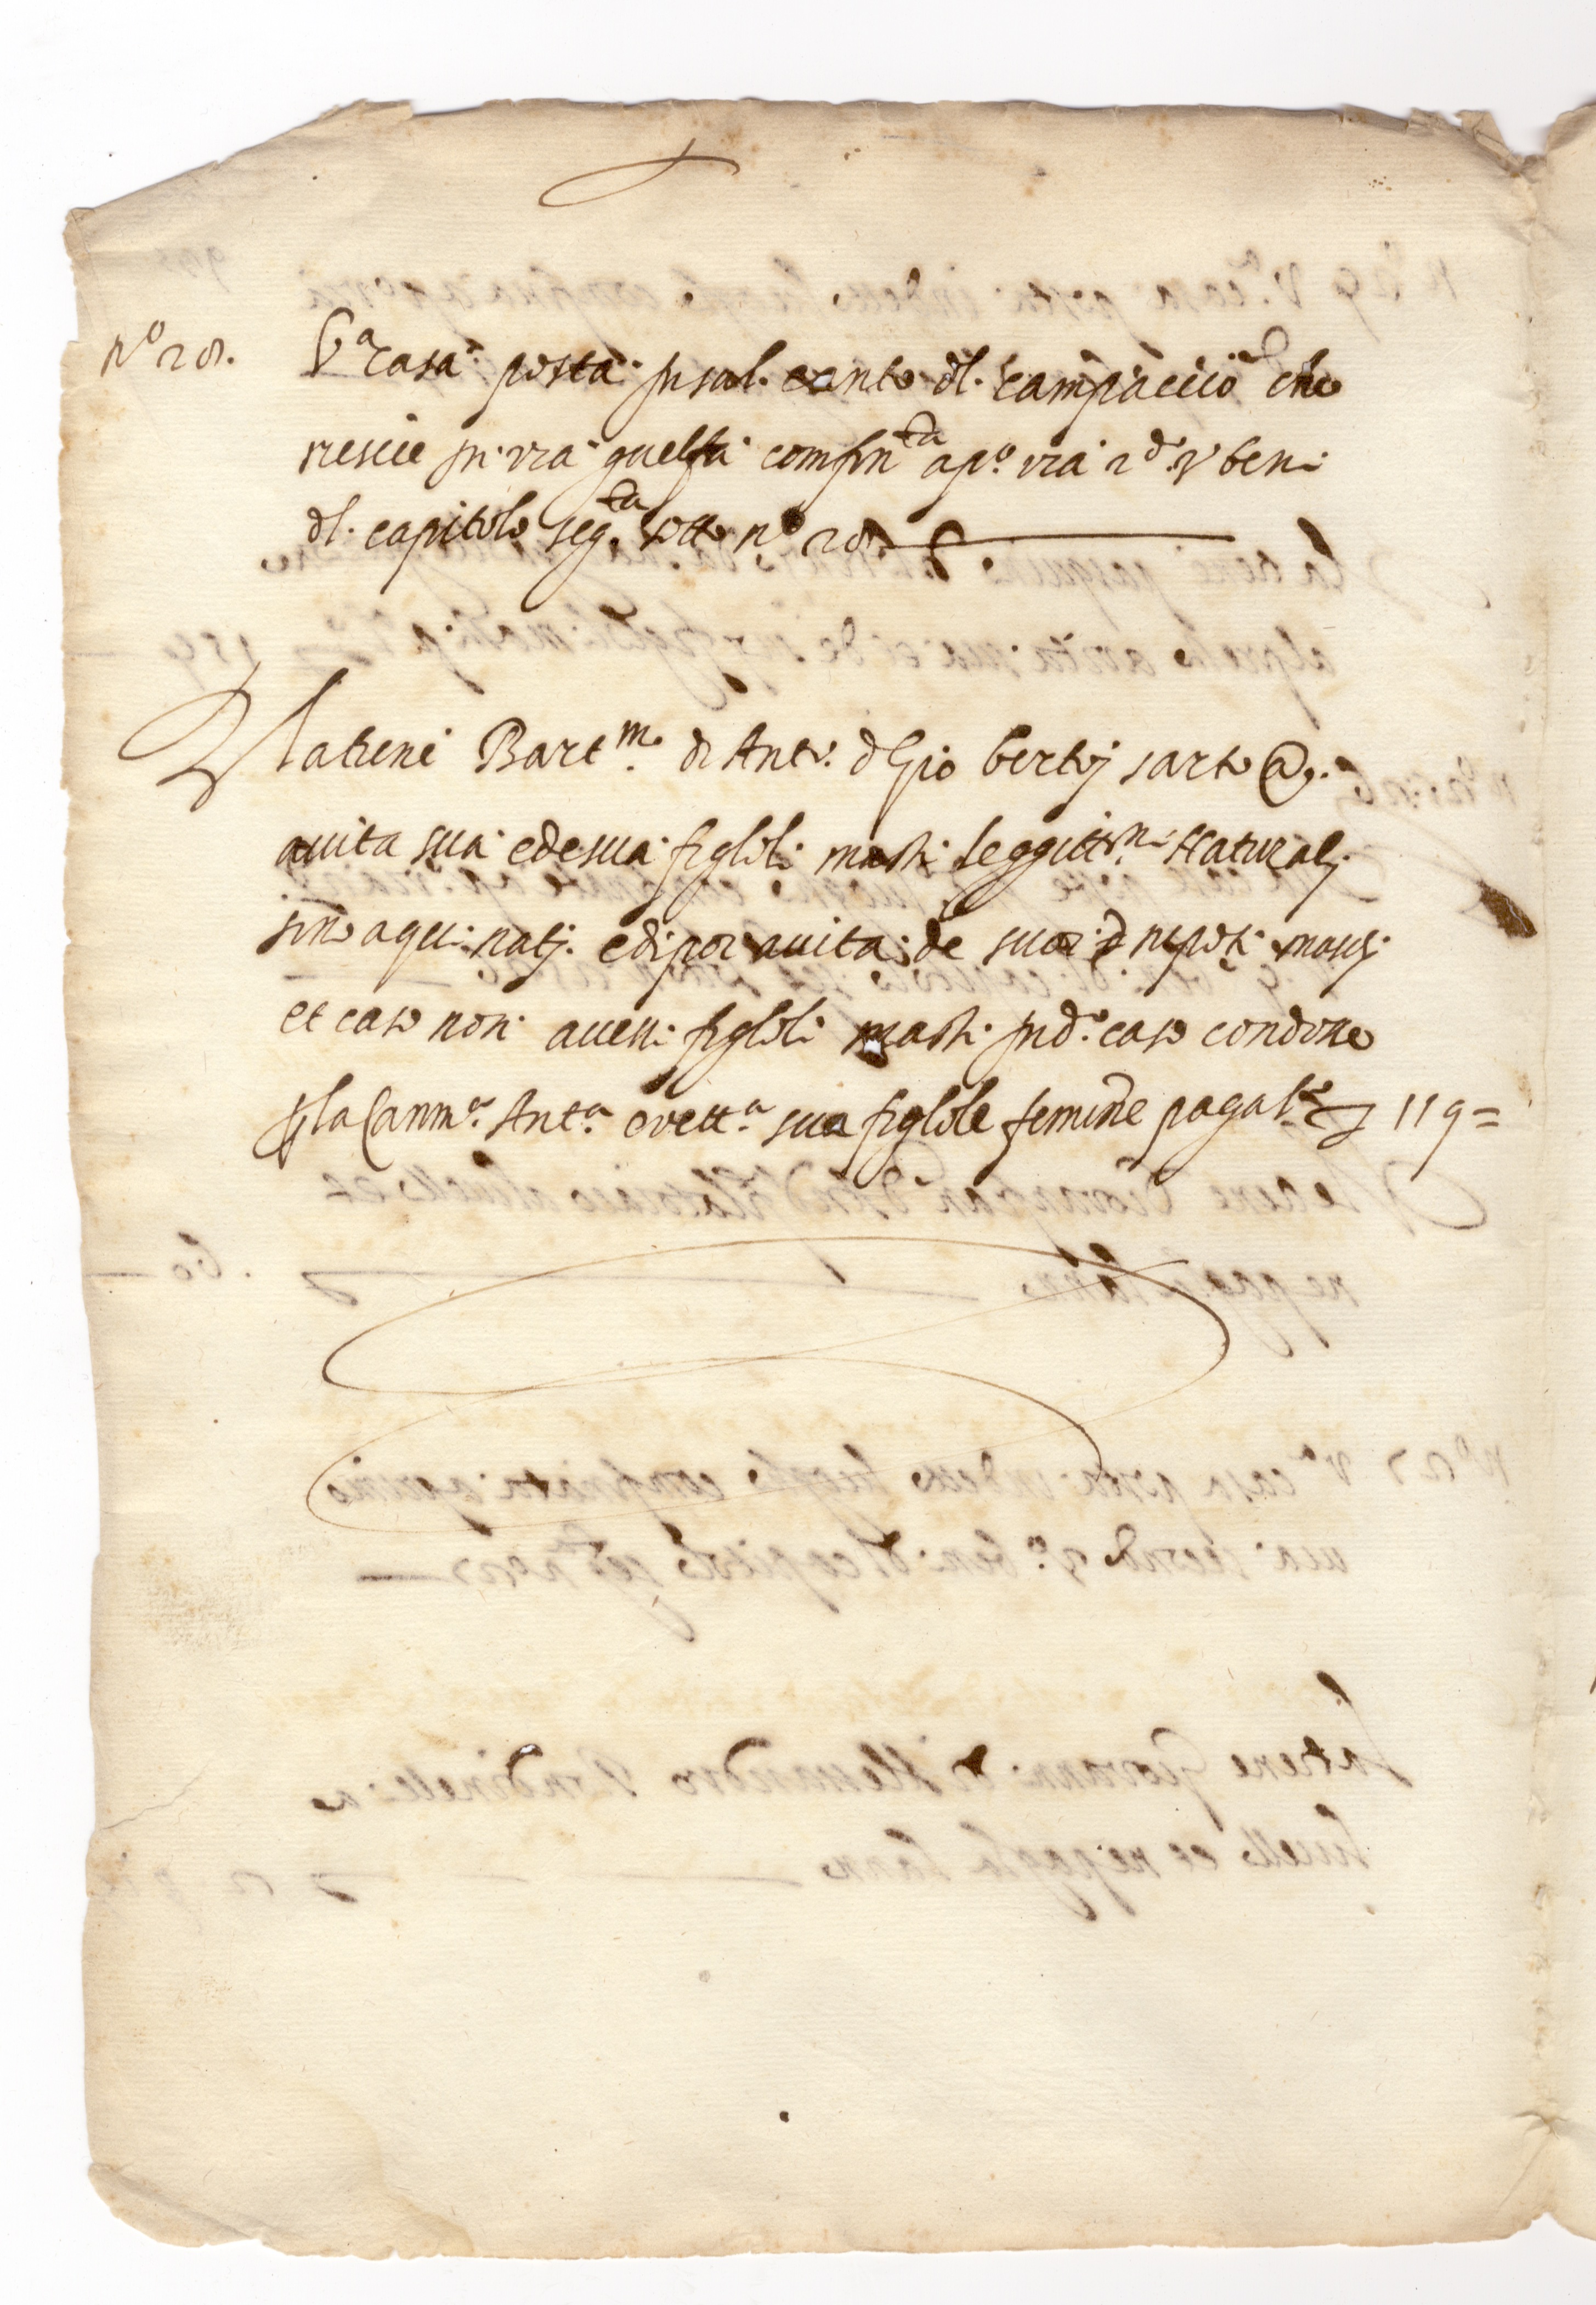 N° 28.
Vª casa posta in sul canto dl. campaccio che
riescie in via guelfa confinta a p° via 2d° 3° beni
dl. capitolo segta sotto n° 28
La tiene Bartmo di Anto. d Gio bertij sarto
a vita sua e de sua figloli masti leggittmi Naturalj
sino a qui natj. e di poi a vita de suoi nipoti mascj
et caso non avessi figloli masti in d° caso condotte
p la Canma. Anta. ovetta sua figlole femine paga lre 119=